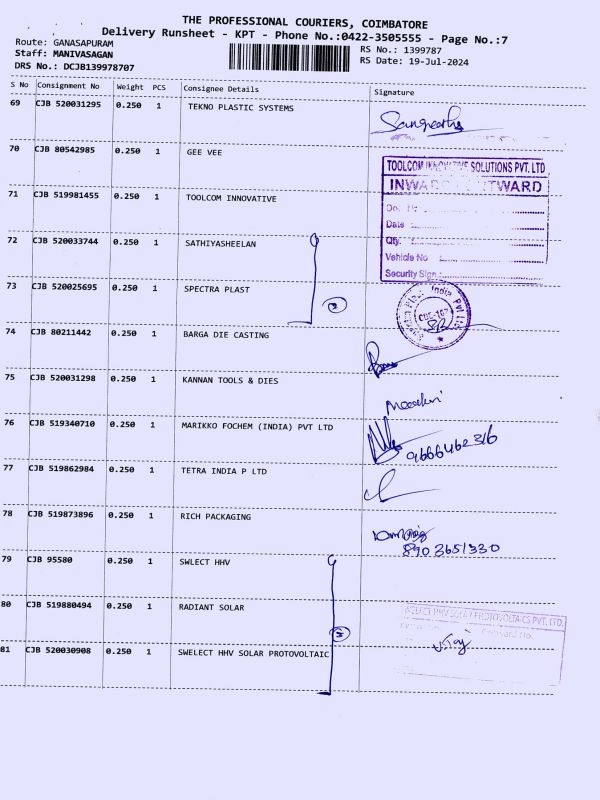 THE PROFESSIONAL COURIERS, COIMBATORE
Delivery Runsheet - KPT - Phone No.:0422-3505555 - Page No.:7
Route: GANASAPURAM
RS No.: 1399787
Staff: MANIVASAGAN
RS Date: 19-Jul-2024
DRS No.: DCJB139978707
S No Consignment No Weight PCS Consignee Details Signature
69 CJB 520031295 0.250 1 TEKNO PLASTIC SYSTEMS
Sangeetha
70 CJB 80542985 0.250 1 GEE VEE
TOOLCOM INNOVATIVE SOLUTIONS PVT. LTD
INWARD OUTWARD
71 CJB 519981455 0.250 1 TOOLCOM INNOVATIVE
Date
72 CJB 520033744 0.250 1 SATHIYASHEELAN
Qty.
Vehicle No
Security Sign.:
73 CJB 520025695 0.250 1 SPECTRA PLAST
2
India Pvt Ltd
74 CJB 80211442 0.250 1 BARGA DIE CASTING
75 CJB 520031298 0.250 1 KANNAN TOOLS & DIES
76 CJB 519340710 0.250 1 MARIKKO FOCHEM (INDIA) PVT LTD
9666462316
77 CJB 519862984 0.250 1 TETRA INDIA P LTD
78 CJB 519873896 0.250 1 RICH PACKAGING
8903651330
79 CJB 95580 0.250 1 SWLECT HHV
80 CJB 519880494 0.250 1 RADIANT SOLAR
SWELECT HHV SOLAR PHOTOVOLTAICS PVT. LTD.
81 CJB 520030908 0.250 1 SWELECT HHV SOLAR PROTOVOLTAIC